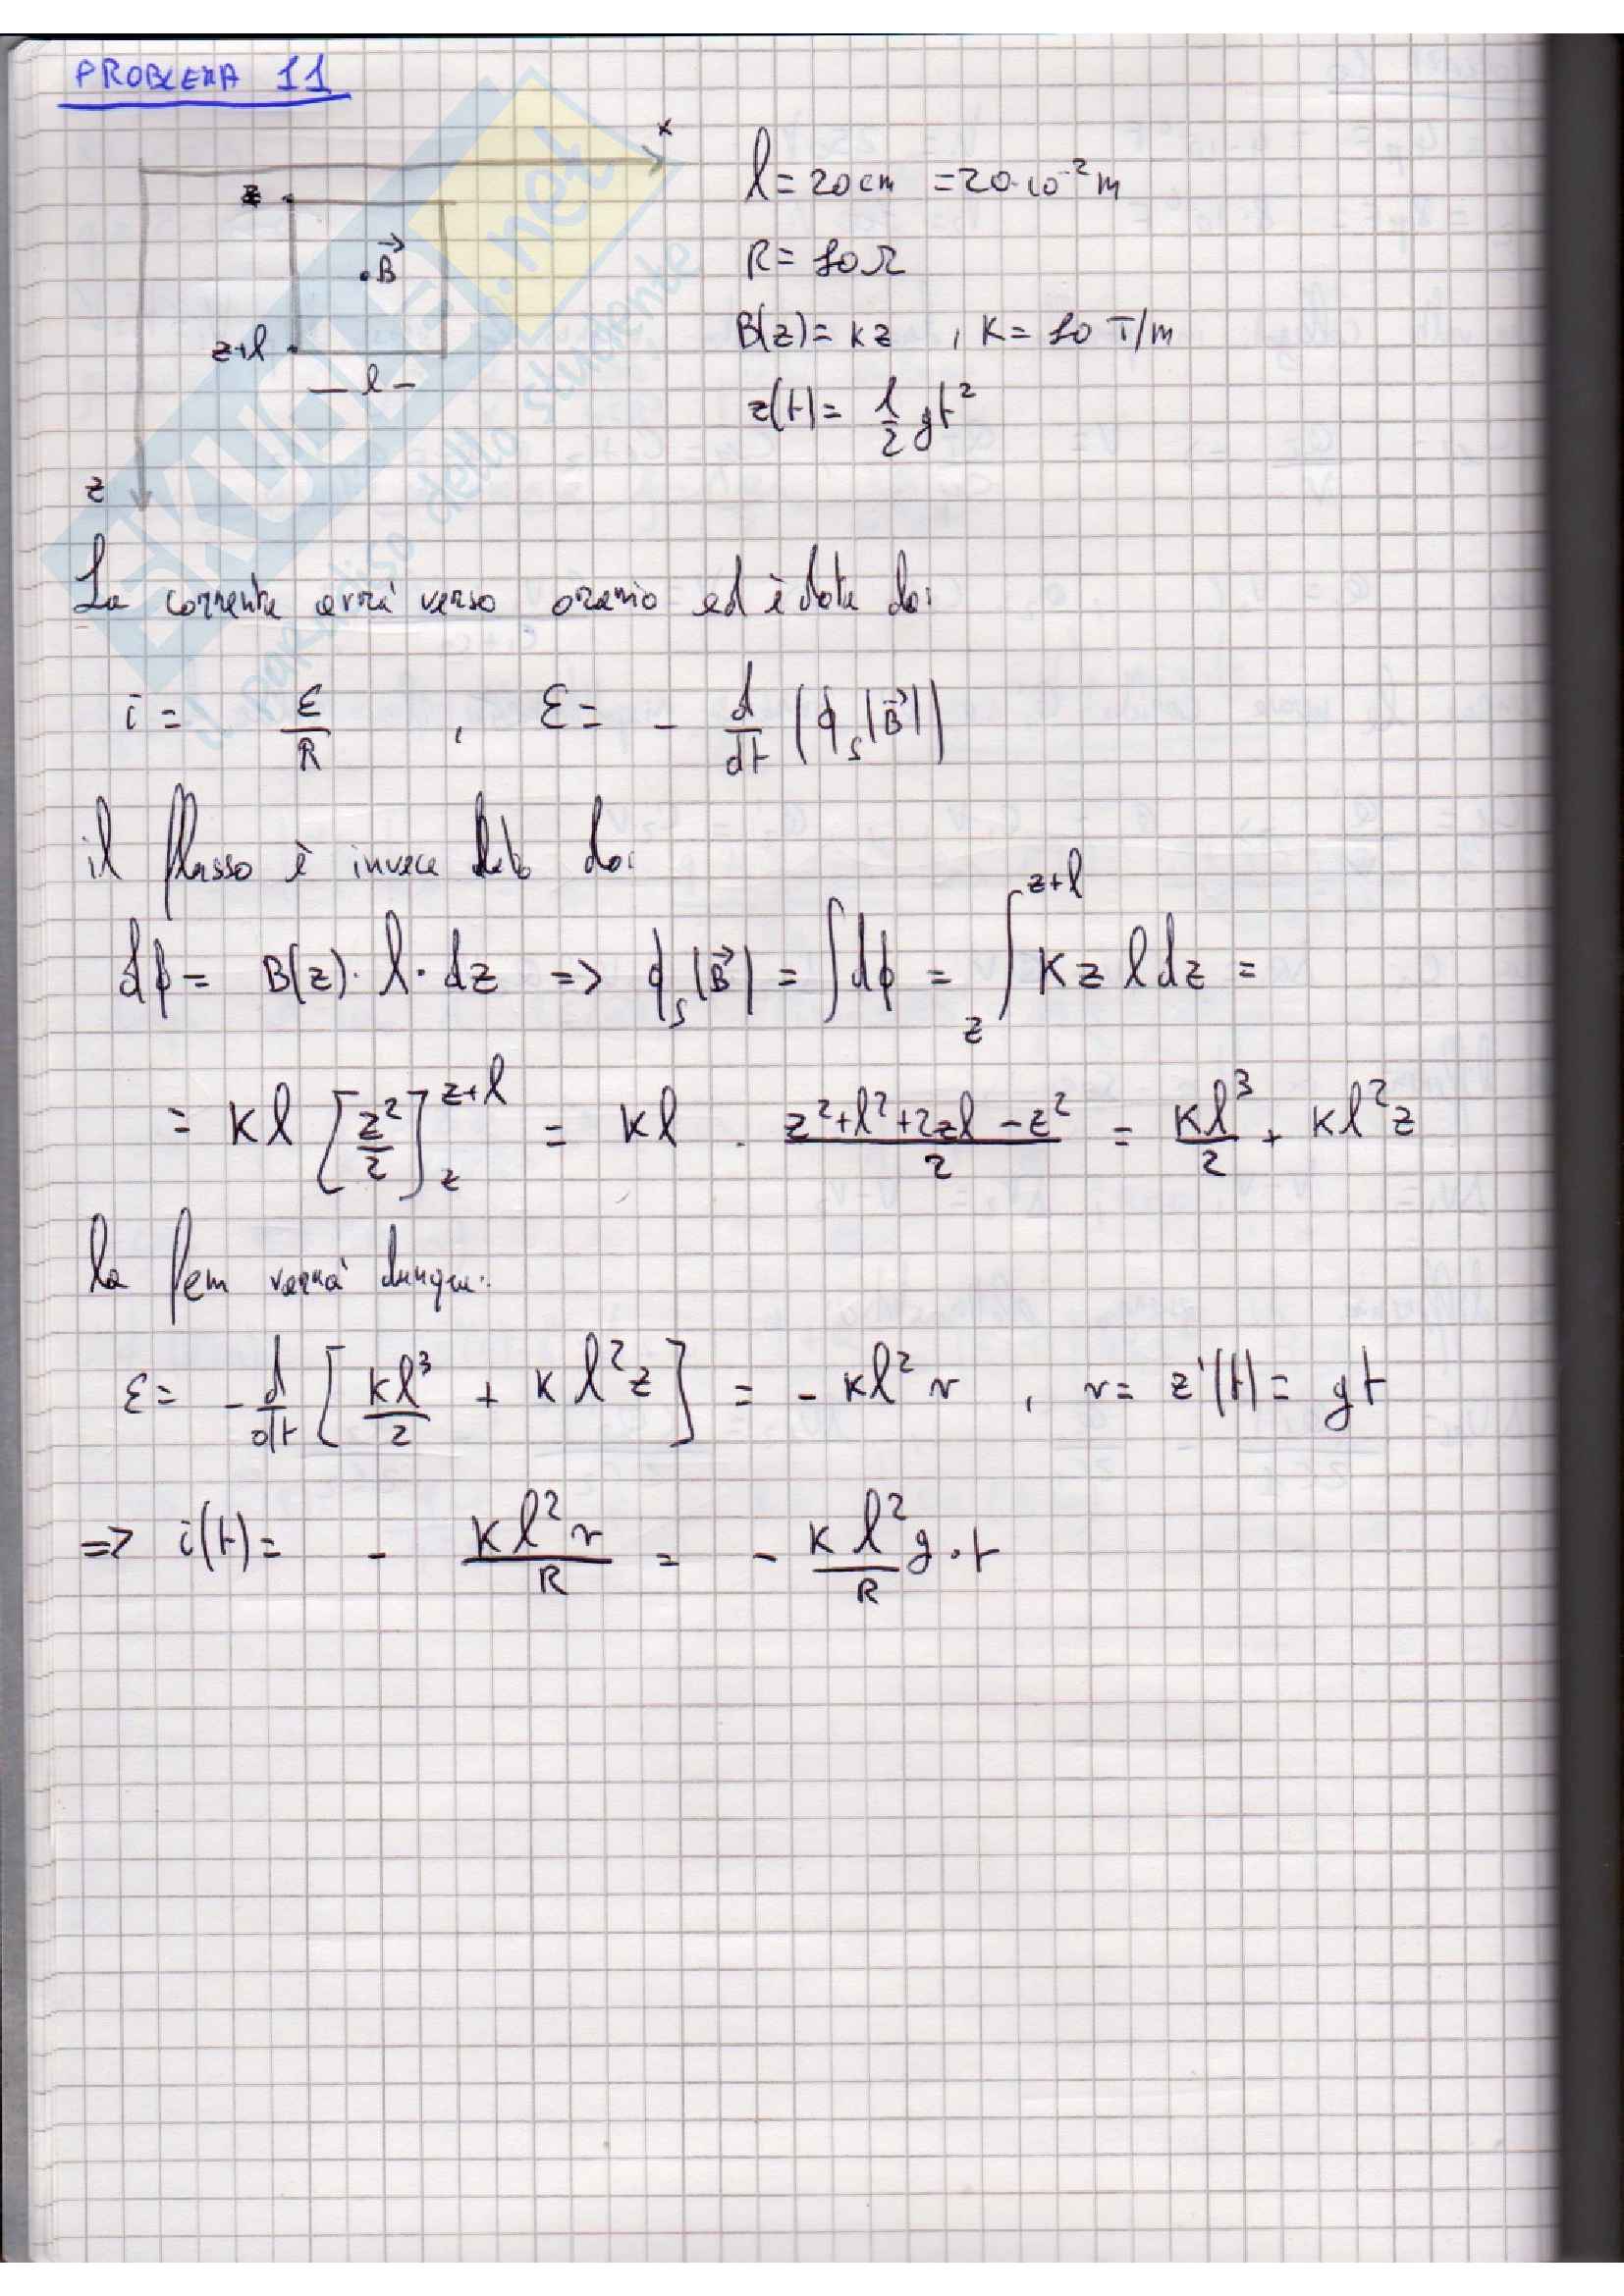 PROBLEMA 11
x
z
B⃗
z+l
– l –
z
l = 20 cm = 20·10⁻² m
R = 10 Ω
B(z) = kz , k = 10 T/m
z(t) = 1/2 gt²
La corrente avrà verso orario ed è data da:
i = ε/R , ε = - d/dt (ϕ_S(B⃗))
il flusso è invece dato da:
dϕ = B(z)· l· dz => ϕ_S(B⃗) = ∫dϕ = ∫_z^{z+l} Kz l dz =
= Kl [z²/2]_z^{z+l} = Kl · (z²+l²+2zl-z²)/2 = Kl³/2 + Kl²z
la fem verrà dunque:
ε = - d/dt [Kl³/2 + Kl²z] = - Kl²v , v = z'(t) = gt
=> i(t) = - Kl²v/R = - Kl²/R g·t
SKUOLA.net
il paradiso dello studente